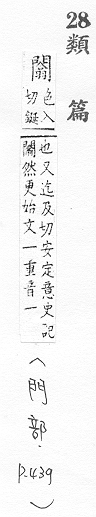 28 類篇
闟
色入
切鋋
也又迄及切安定意史記
闟然更始文一重音一
(門部. P.439)